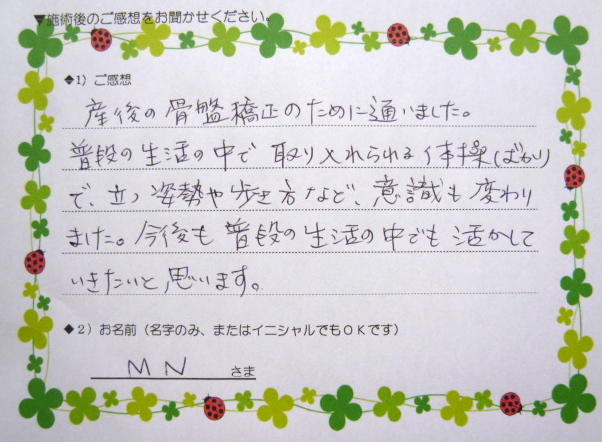 ▼施術後のご感想をお聞かせください。
◆1）ご感想
産後の骨盤矯正のために通いました。
普段の生活の中で取り入れられる体操ばかり
で、立つ姿勢や歩き方など、意識も変わり
ました。今後も普段の生活の中でも活かして
いきたいと思います。
◆2）お名前（名字のみ、またはイニシャルでもＯＫです）
M N さま